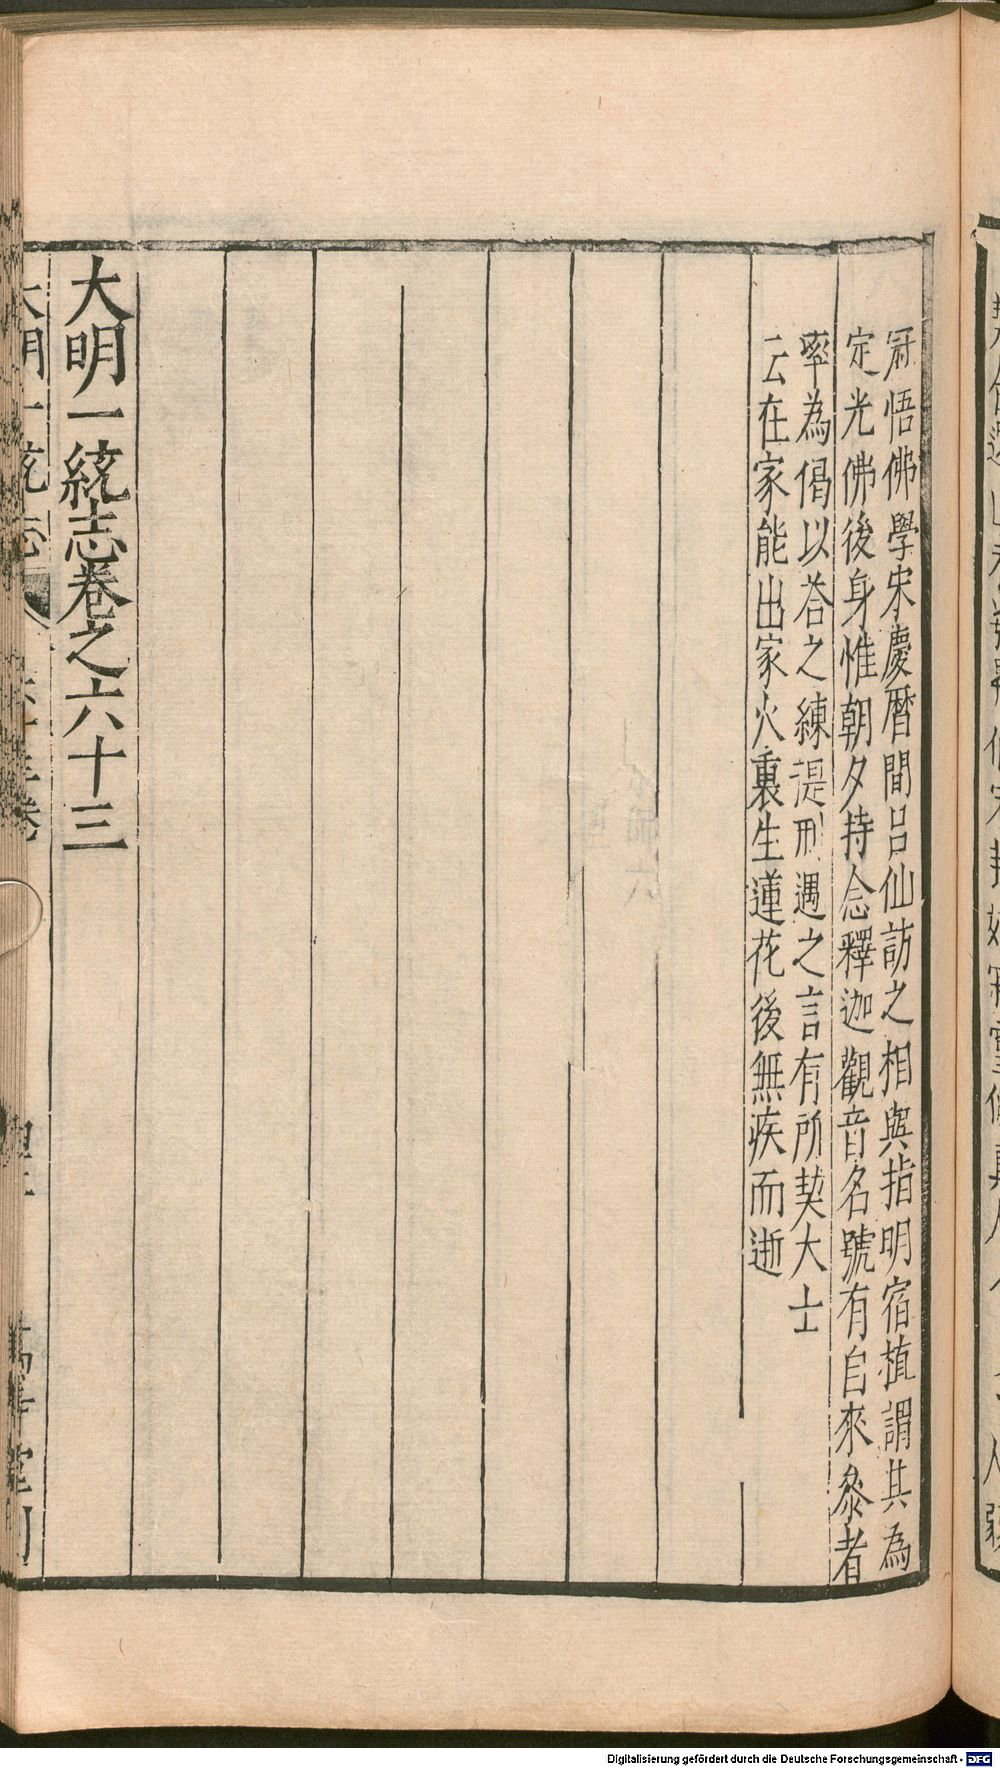 冠悟佛學宋慶曆間呂仙訪之相與指明宿植謂其為
定光佛後身惟朝夕持念釋迦觀音名號有自來叅者
率為偈以答之練湜刑遇之言有所契大士
云在家能出家火裏生蓮花後無疾而逝
大明一統志卷之六十三
大明一統志
萬壽堂刊
Digitalisierung gefördert durch die Deutsche Forschungsgemeinschaft - DFG